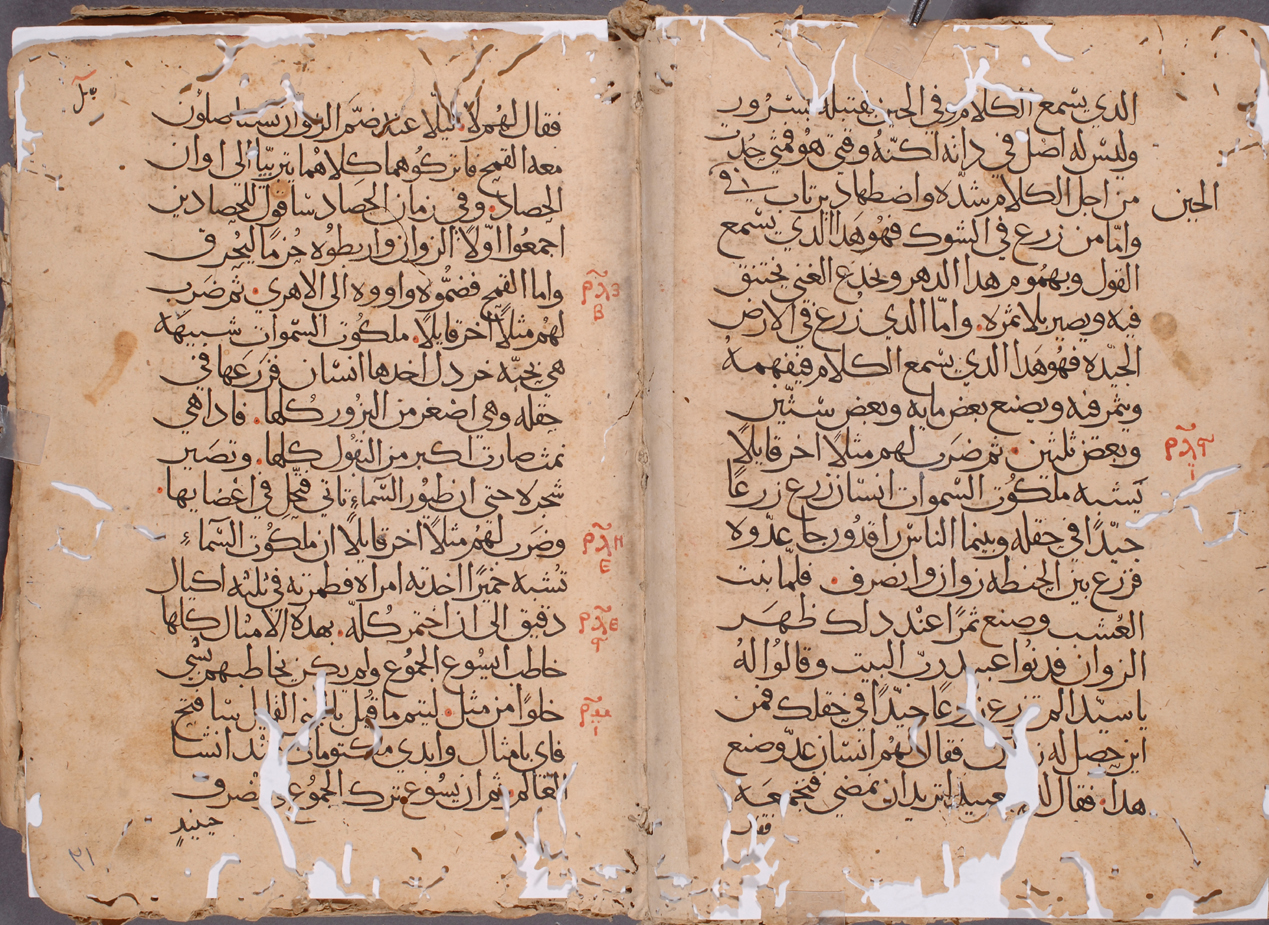 الدي يسمع الكلام وفي الحين يقتبله بسرور
وليس له اصل في داته لكنه وقتي هو فمتي حدث
من اجل الكلام شده واضطهاد يرتاب
الحين
واما من زرع في الشوك فهو هدا الدي يسمع
القول وبهموم هدا الدهر وبخدع الغني يختنق
فيه ويصير بلا ثمره. واما الدي زرع في الارض
الجيده فهو هدا الدي يسمع الكلام فيفهمه
ويثمر فيه ويصنع بعض مايه وبعض ستين
وبعض ثلثين. ثم ضرب لهم مثلا اخر قايلا
يشبه ملكوت السموات انسان زرع زرعا
جيدا في حقله وبينما الناس راقدون جا عدوه
فزرع بين الحنطه زوان وانصرف. فلما نبت
العشب وصنع ثمرا عند دلك ظهر
الزوان فدنوا عبيد رب البيت وقالوا له
يا سيد الم تزرع زرعا جيدا في حقلك فمن
اين حصل له فقال لهم انسان عدو صنع
هدا. فقال عبيد اتريد ان نمضي فنجمعه
فقال
فقال لهم لا. ليلا عند ضم الزوان تستاصلون
معه القمح فاتركوهما كلاهما تربيا الى اوان
الحصاد. وفي زمان الحصاد ساقول للحصادين
اجمعوا اولا الزوان واربطوه حزما ليحرق
واما القمح فضموه واووه الى الاهري. ثم ضرب
لهم مثلا اخر قايلا. ملكوت السموات شبيهه
هي بحبه خردل اخدها انسان فزرعها في
حقله وهي اصغر من البزور كلها. فادا هي
نمت صارت اكبر من البقول كلها. وتصير
شجره حتى ان طيور السماء تاتي فتحل في اغصانها.
وضرب لهم مثلا اخر قايلا ان ملكوت السماء
تشبه خميرا اخدته امراه وطمرته في ثلثه اكيال
دقيق الى ان اختمر كله. بهده الامثال كلها
خاطب ايسوع الجموع ولم يكن يخاطبهم بشي
خلوا من مثل. ليتم ما قيل بالنبي القايل سافتح
فاي بامثال وابدي مكتوما مند انشا
العالم. ثم ان يسوع ترك الجموع وانصرف
حينيد
٣١